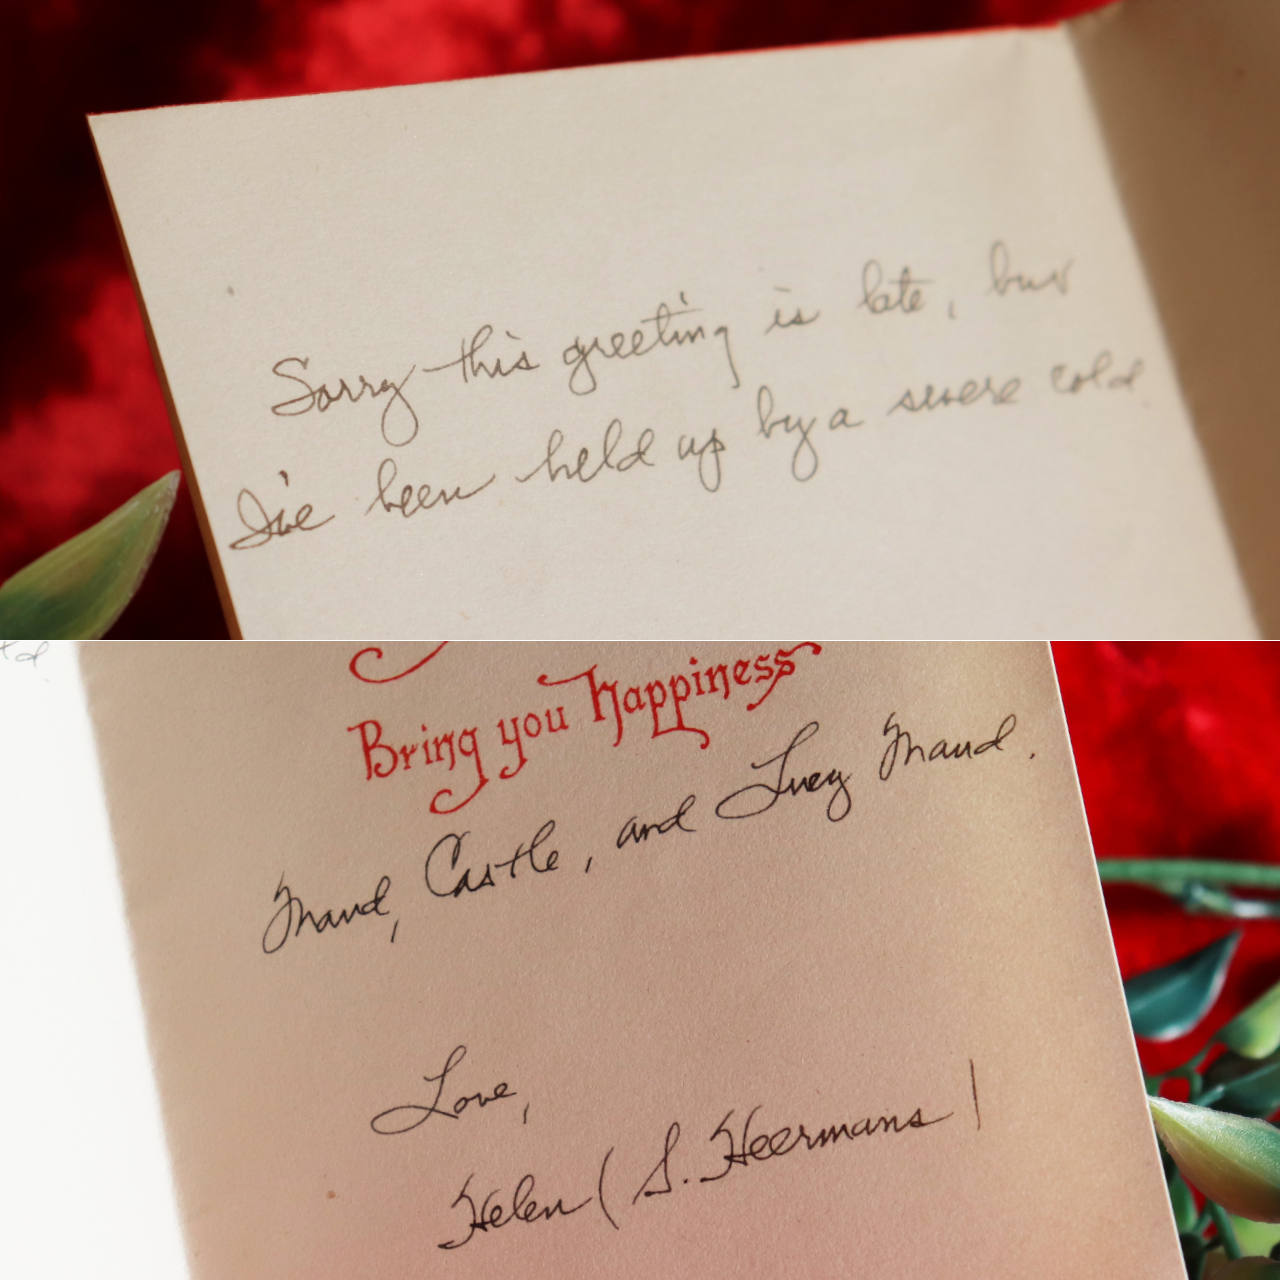 Sorry this greeting is late, but
I've been held up by a severe cold.
Bring you Happiness
Maud, Castle, and Lucy Maud.
Love,
Helen (S. Heermans)